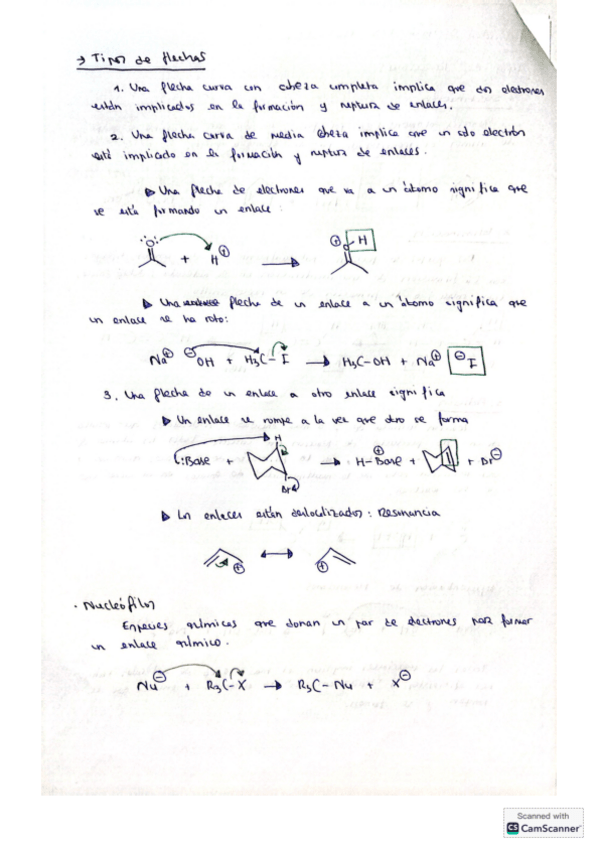 → Tipos de flechas
1. Una flecha curva con cabeza completa implica que dos electrones
están implicados en la formación y ruptura de enlaces.
2. Una flecha curva de media cabeza implica que un solo electrón
está implicado en la formación y ruptura de enlaces.
▷ Una flecha de electrones que va a un átomo significa que
se está formando un enlace:
:O: + H⊕ → ⊕ O-H
▷ Una flecha de un enlace a un átomo significa que
un enlace se ha roto:
Na⊕ ⊖OH + H₃C-I → H₃C-OH + Na⊕ ⊖I
3. Una flecha de un enlace a otro enlace significa
▷ Un enlace se rompe a la vez que otro se forma
:Base + H Br → H-Base⊕ + + Br⊖
▷ Los enlaces están deslocalizados: Resonancia
⊕ ↔ ⊕
· Nucleófilos
Especies químicas que donan un par de electrones para formar
un enlace químico.
Nu⊖ + R₃C-X → R₃C-Nu + X⊖
Scanned with
CS CamScanner